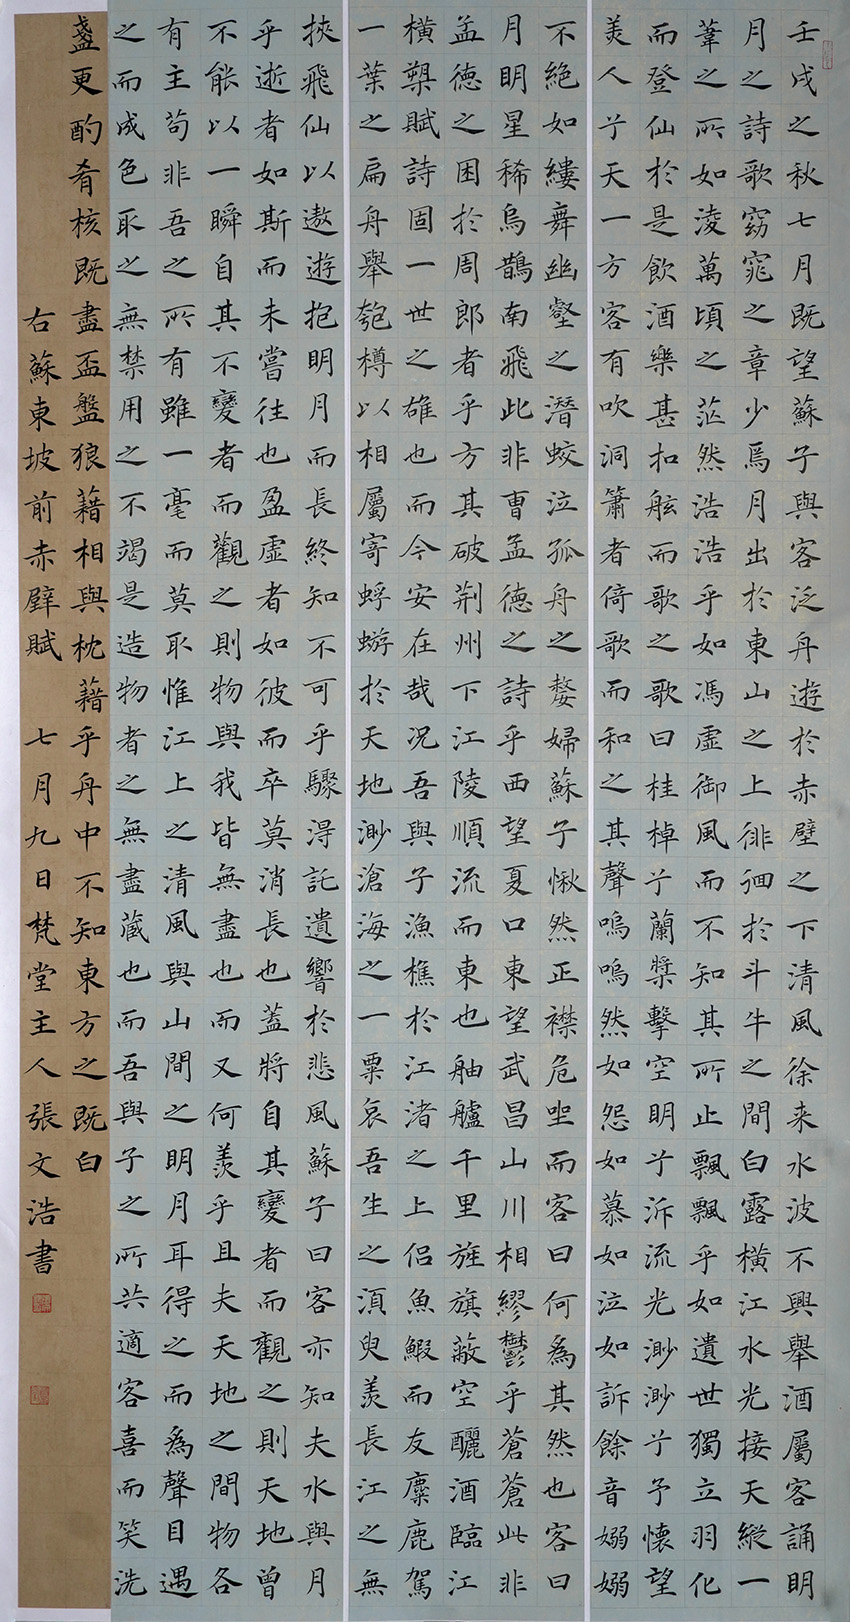 壬戌之秋七月既望蘇子與客泛舟遊於赤壁之下清風徐来水波不興舉酒屬客誦明
月之詩歌窈窕之章少焉月出於東山之上徘徊於斗牛之間白露橫江水光接天縱一
葦之所如淩萬頃之茫然浩浩乎如馮虛御風而不知其所止飄飄乎如遺世獨立羽化
而登仙於是飲酒樂甚扣舷而歌之歌曰桂棹兮蘭槳擊空明兮泝流光渺渺兮予懷望
美人兮天一方客有吹洞簫者倚歌而和之其聲嗚嗚然如怨如慕如泣如訴餘音嫋嫋
不絶如縷舞幽壑之潛蛟泣孤舟之嫠婦蘇子愀然正襟危坐而客曰何為其然也客曰
月明星稀烏鵲南飛此非曹孟德之詩乎西望夏口東望武昌山川相繆鬱乎蒼蒼此非
孟德之困於周郎者乎方其破荊州下江陵順流而東也舳艫千里旌旗蔽空釃酒臨江
橫槊賦詩固一世之雄也而今安在哉況吾與子漁樵於江渚之上侶魚鰕而友麋鹿駕
一葉之扁舟舉匏樽以相屬寄蜉蝣於天地渺滄海之一粟哀吾生之須臾羨長江之無
挾飛仙以遨遊抱明月而長終知不可乎驟得託遺響於悲風蘇子曰客亦知夫水與月
乎逝者如斯而未嘗往也盈虛者如彼而卒莫消長也蓋將自其變者而觀之則天地曾
不能以一瞬自其不變者而觀之則物與我皆無盡也而又何羨乎且夫天地之間物各
有主苟非吾之所有雖一毫而莫取惟江上之清風與山間之明月耳得之而為聲目遇
之而成色取之無禁用之不竭是造物者之無盡藏也而吾與子之所共適客喜而笑洗
盞更酌肴核既盡盃盤狼藉相與枕藉乎舟中不知東方之既白
右蘇東坡前赤壁賦 七月九日梵堂主人張文浩書